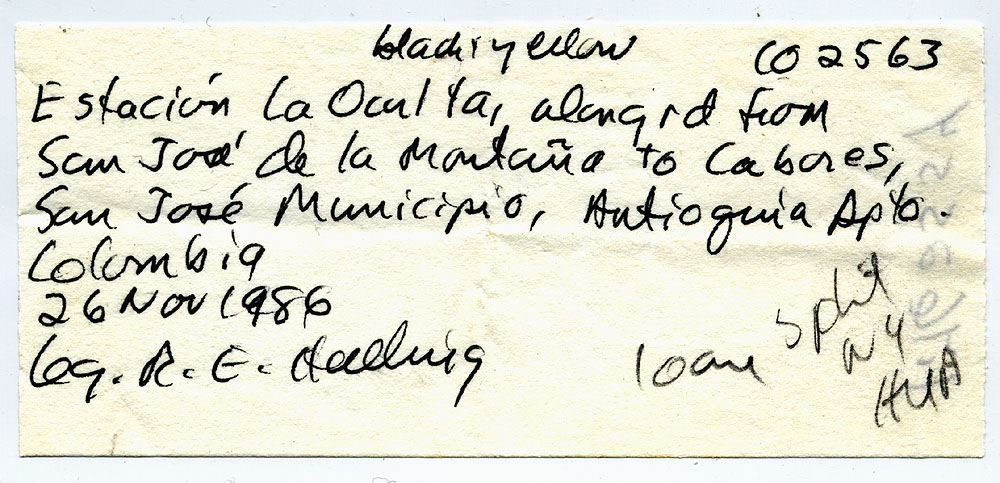 black yellow CO 2563
Estación La Oculta, along rd from
San José de la Montaña to Labores,
San José Municipio, Antioquia Dpto.
Colombia
26 Nov 1986
leg. R. E. Halling
loan
split
NY
HUA